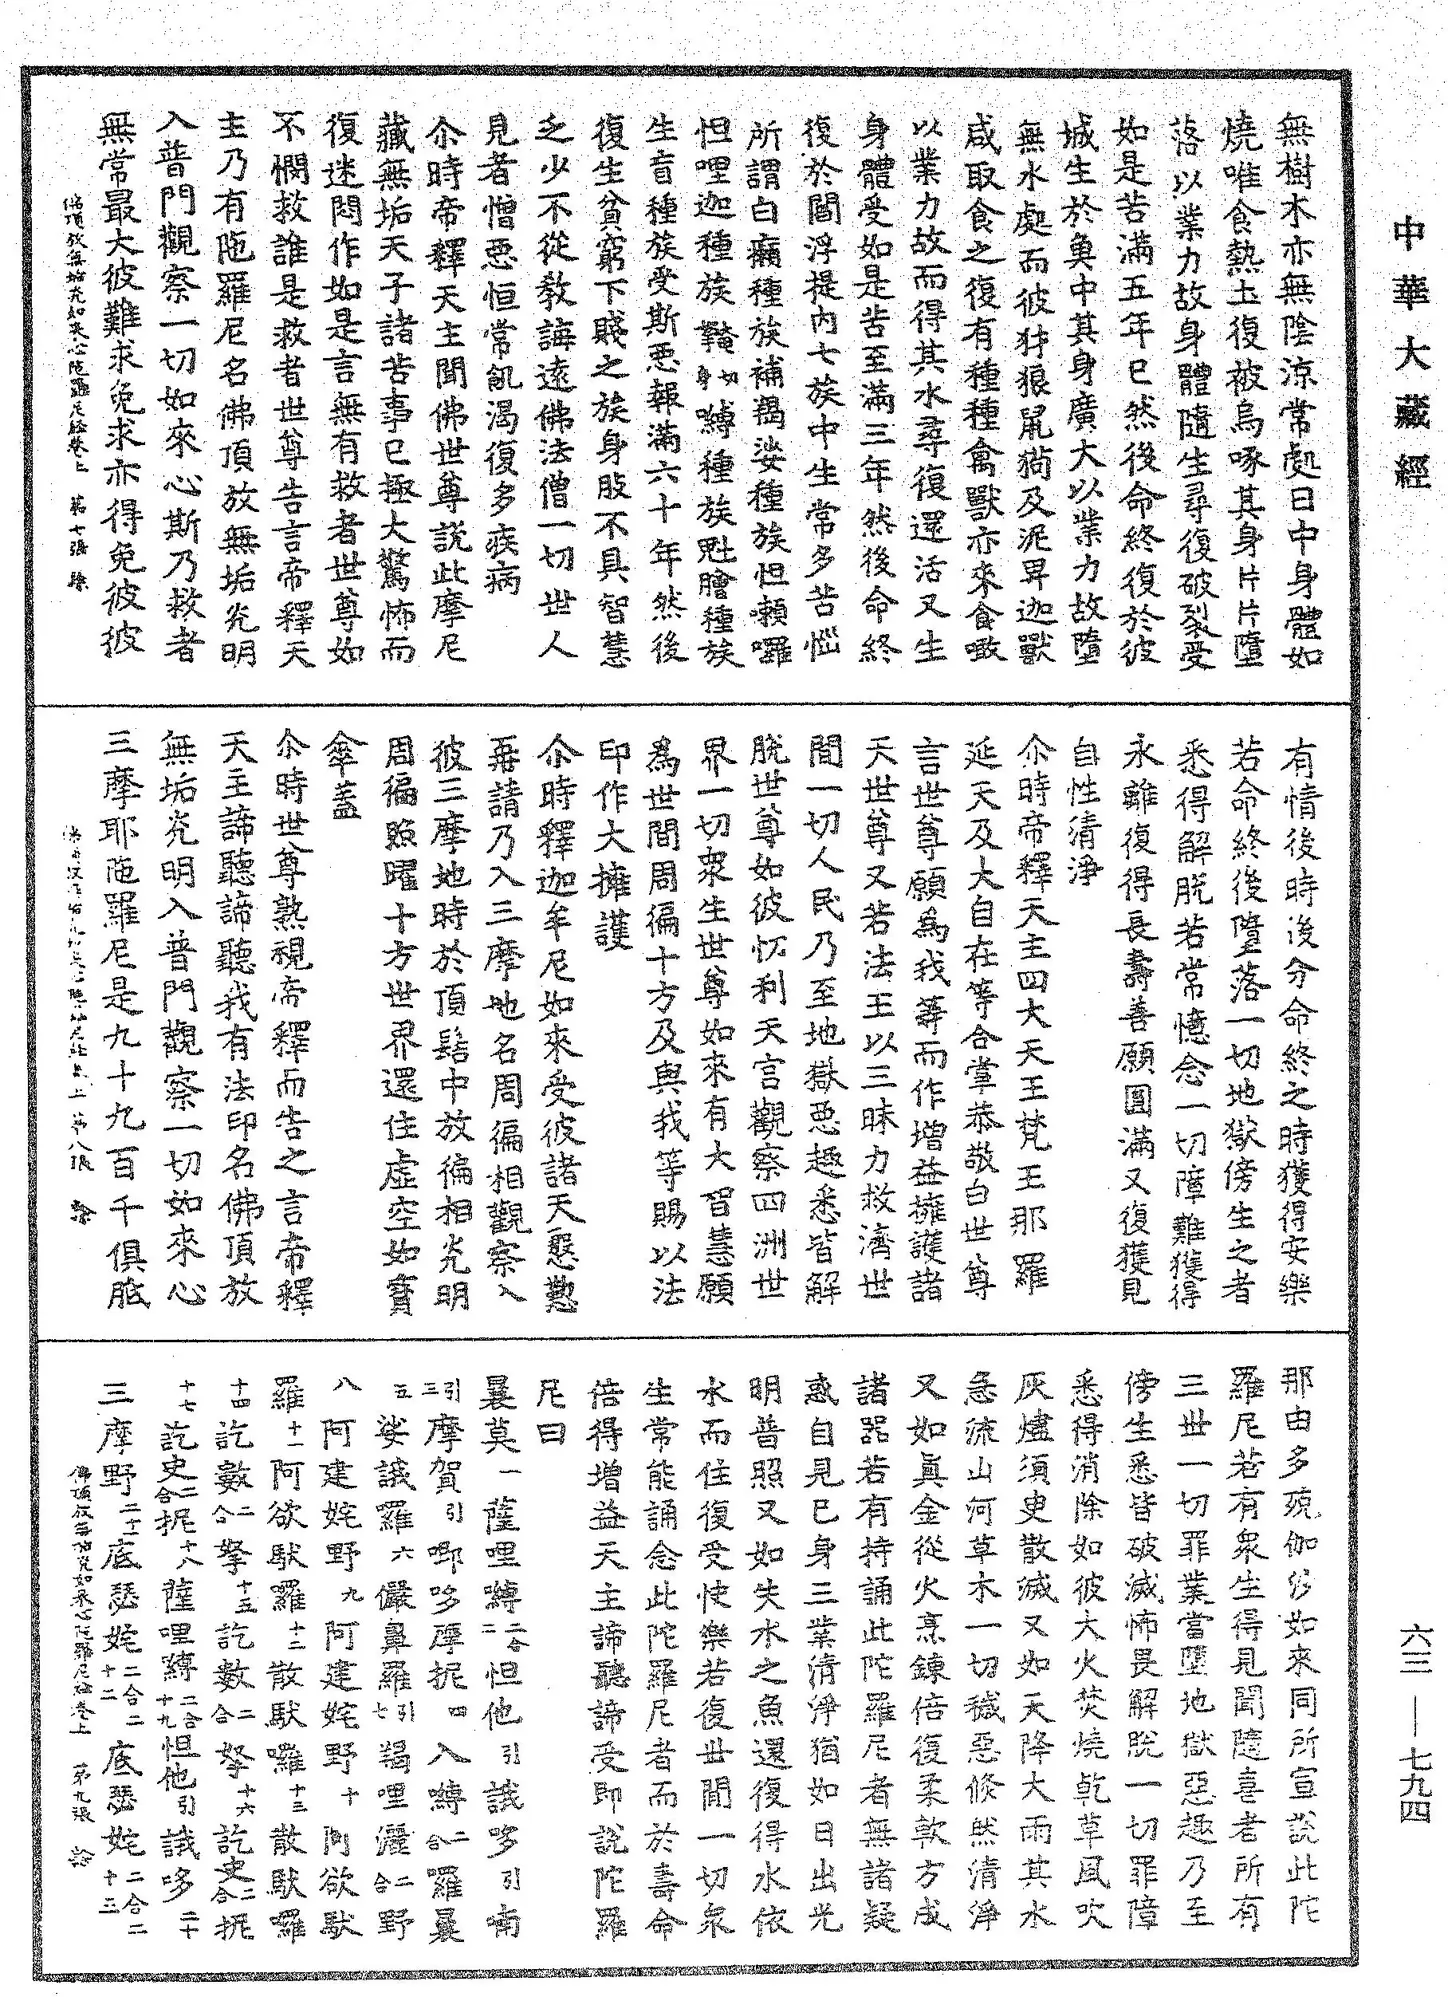 中華大藏經
無樹木亦無陰涼常處日中身體如
燒唯食熱土復被烏啄其身片片墮
落以業力故身體隨生尋復破裂受
如是苦滿五年已然後命終復於彼
城生於奥中其身廣大以業力故墮
無水處而彼豺狼鼠狗及泥畀迦獸
咸取食之復有種種禽獸亦來食噉
以業力故而得其水尋復還活又生
身體受如是苦至滿三年然後命終
復於閻浮提內七族中生常多苦惱
所謂白癩種族補羯娑種族怛賴囉
怛哩迦種族鞋切身嚩種族魁膾種族
生盲種族受斯惡報滿六十年然後
復生貧窮下賤之族身肢不具智慧
乏少不從教誨遠佛法僧一切世人
見者憎惡恒常飢渴復多疾病
尒時帝釋天主聞佛世尊說此摩尼
藏無垢天子諸苦事已極大驚怖而
復迷悶作如是言無有救者世尊如
不憫救誰是救者世尊告言帝釋天
主乃有陁羅尼名佛頂放無垢光明
入普門觀察一切如來心斯乃救者
無常最大彼難求免求亦得免彼彼
佛頂放無垢光如來心陀羅尼經卷上 第七張
有情後時後分命終之時獲得安樂
若命終後墮落一切地獄傍生之者
悉得解脫若常憶念一切障難獲得
永離復得長壽善願圓滿又復獲見
自性清淨
尒時帝釋天主四大天王梵王那羅
延天及大自在等合掌恭敬白世尊
言世尊願為我等而作增益擁護諸
天世尊又若法王以三昧力救濟世
間一切人民乃至地獄惡趣悉皆解
脫世尊如彼忉利天宮觀察四洲世
界一切衆生世尊如來有大智慧願
為世間周徧十方及與我等賜以法
印作大擁護
尒時釋迦牟尼如來受彼諸天懇懃
再請乃入三摩地名周徧相觀察入
彼三摩地時於頂髻中放徧相光明
周徧照曜十方世界還住虛空如寶
傘蓋
尒時世尊熟視帝釋而告之言帝釋
天主諦聽諦聽我有法印名佛頂放
無垢光明入普門觀察一切如來心
三摩耶陁羅尼是九十九百千俱胝
上 第八張
那由多殑伽沙如來同所宣說此陀
羅尼若有衆生得見聞隨喜者所有
三世一切罪業當墮地獄惡趣乃至
傍生悉皆破滅怖畏解脫一切罪障
悉得消除如彼大火焚燒乾草風吹
灰燼須臾散滅又如天降大雨其水
急流山河草木一切穢惡倏然清淨
又如真金從火烹鍊倍復柔軟方成
諸器若有持誦此陀羅尼者無諸疑
惑自見已身三業清淨猶如日出光
明普照又如失水之魚還復得水依
水而住復受快樂若復世間一切衆
生常能誦念此陀羅尼者而於壽命
倍得增益天主諦聽諦受即說陀羅
尼曰
曩莫一薩哩嚩二合二怛他引誐哆引喃
引三摩賀引唧哆摩抳四入嚩二合羅曩
五娑誐羅六儼鼻羅引七羯哩灑二合野
八阿建姹野九阿建姹野十阿欲馱
羅十一阿欲馱羅十二散馱囉十三散馱囉
十四訖數二合拏十五訖數二合拏十六訖史二合抳
十七訖史二合抳十八薩哩嚩二合十九怛他引誐哆二十
三摩野二十一底瑟姹二合二十二底瑟姹二合二十三
佛頂放無垢光如來心陀羅尼經卷上 第九張
六三—七九四